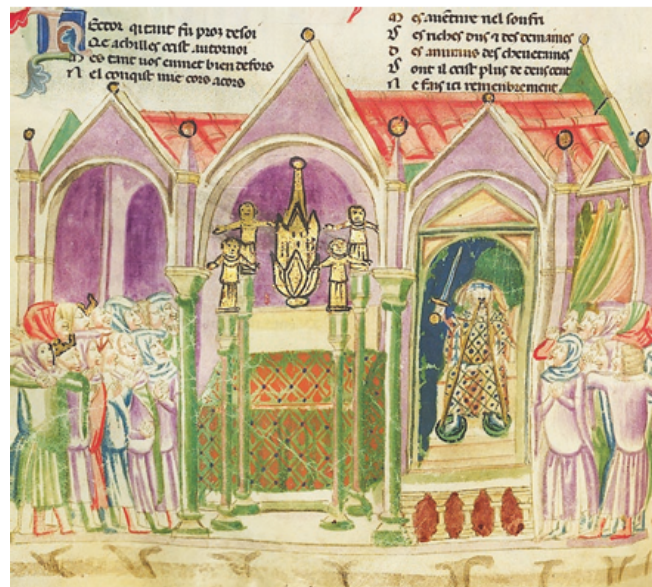 Hector qi tant fu proz de soi
Qe achilles ocist au tornoi
Mes tant uos enmet bien defors
Nel conquist mie cors a cors
es auenture nel soufri
es riches dus & des demaines
des amiraus des cheuetaines
ont il ocist plus de deus cent
ne fais ici remenbrement